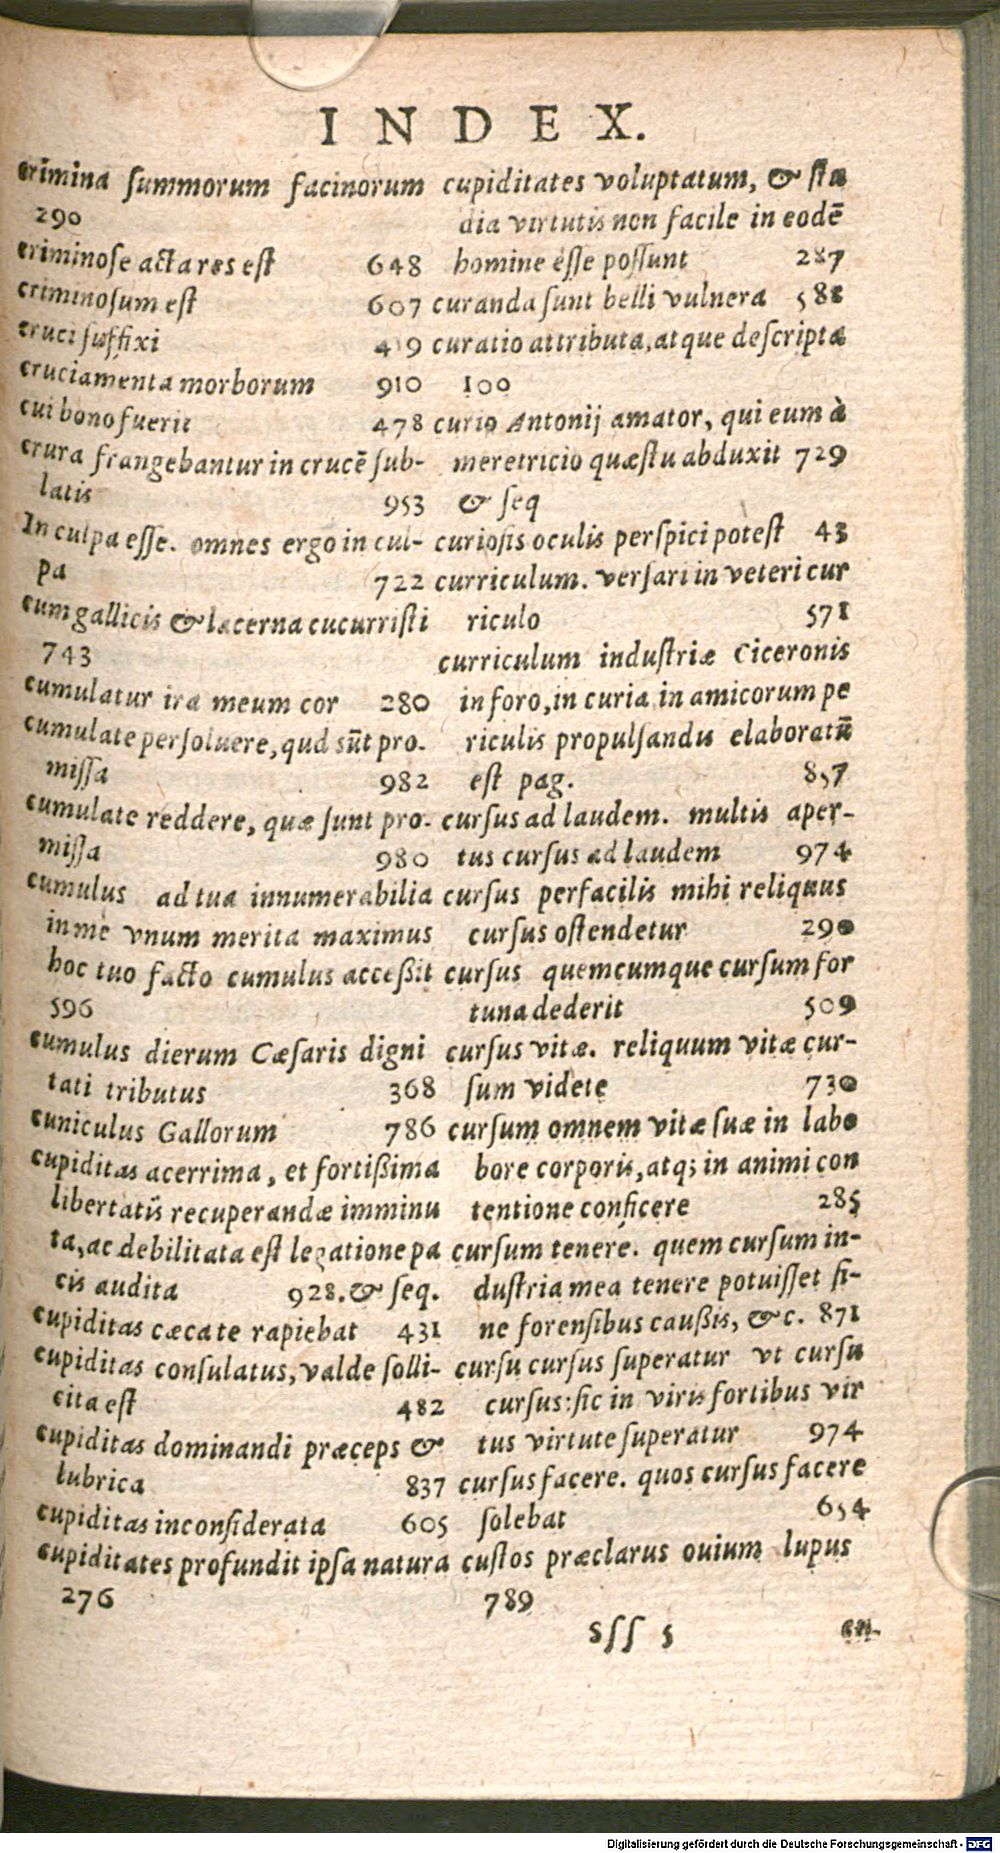 INDEX.
crimina summorum facinorum
290
criminose acta res est 648
criminosum est 607
cruci suffixi 419
cruciamenta morborum 910
cui bono fuerit 478
crura frangebantur in crucē sub-
latis 953
In culpa esse. omnes ergo in cul-
pa 722
cum gallicis & lacerna cucurristi
743
cumulatur ira meum cor 280
cumulate persoluere, qud sūt pro-
missa 982
cumulate reddere, quæ sunt pro-
missa 980
cumulus ad tua innumerabilia
in me vnum merita maximus
hoc tuo facto cumulus acceßit
596
cumulus dierum Cæsaris digni
tati tributus 368
cuniculus Gallorum 786
cupiditas acerrima, et fortißima
libertatis recuperandæ imminu
ta, ac debilitata est legatione pa
cis audita 928. & seq.
cupiditas cæca te rapiebat 431
cupiditas consulatus, valde solli-
cita est 482
cupiditas dominandi præceps &
lubrica 837
cupiditas inconsiderata 605
cupiditates profundit ipsa natura
276
cupiditates voluptatum, & stu
dia virtutis non facile in eodē
homine esse possunt 287
curanda sunt belli vulnera 588
curatio attributa, atque descripta
100
curio Antonij amator, qui eum à
meretricio quæstu abduxit 729
& seq
curiosis oculis perspici potest 43
curriculum. versari in veteri cur
riculo 571
curriculum industriæ Ciceronis
in foro, in curia in amicorum pe
riculis propulsandis elaboratū
est pag. 857
cursus ad laudem. multis aper-
tus cursus ad laudem 974
cursus perfacilis mihi reliquus
cursus ostendetur 290
cursus quemcumque cursum for
tuna dederit 509
cursus vitæ. reliquum vitæ cur-
sum videte 730
cursum omnem vitæ suæ in labo
bore corporis, atq; in animi con
tentione conficere 285
cursum tenere. quem cursum in-
dustria mea tenere potuisset si-
ne forensibus caußis, &c. 871
cursu cursus superatur vt cursu
cursus: sic in viris fortibus vir
tus virtute superatur 974
cursus facere. quos cursus facere
solebat 654
custos præclarus ouium lupus
789
sſſ 5
Digitalisierung gefördert durch die Deutsche Forschungsgemeinschaft - DFG